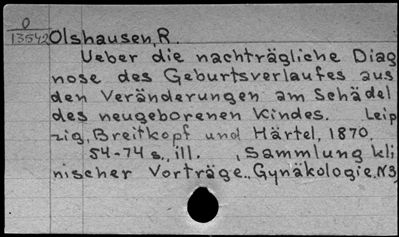 O
13542 Olshausen, R.
Ueber die nachträgliche Diag
nose des Geburtsverlaufes aus
den Veränderungen am Schädel
des neugeborenen Kindes. Leip
zig, Breitkopf und Härtel, 1870.
54-74 s., ill. , Sammlung kli
nischer Vorträge., Gynäkologie, N3,